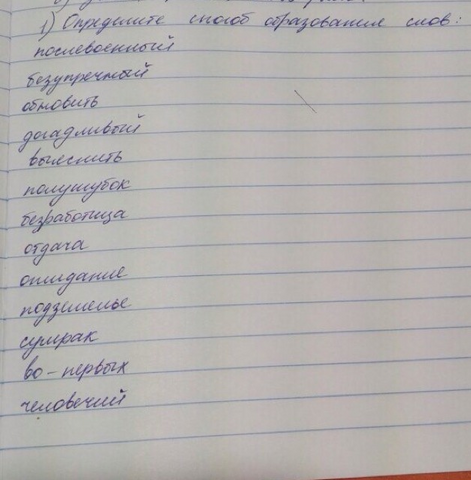 1) Определите способ образования слов:
послевоенный
безупречный
обновить
догадливый
выяснить
полушубок
безработица
отдача
ожидание
подземелье
сумрак
во-первых
человечий